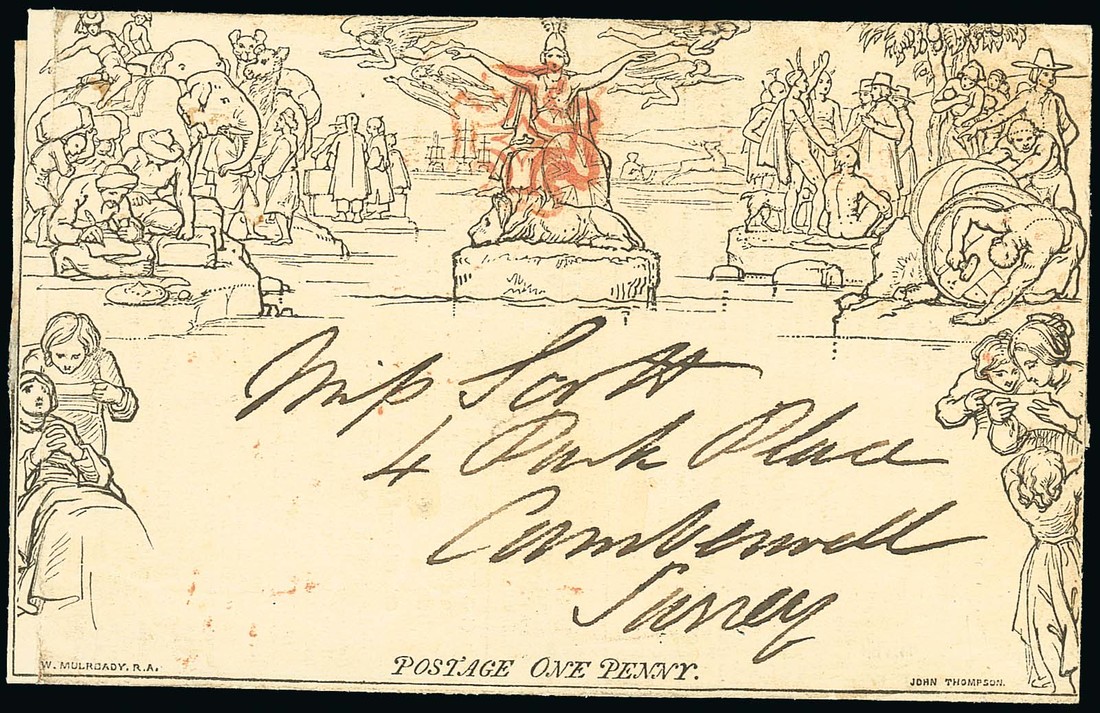 Miss Scott
4 Park Place
Camberwell
Surrey
W. MULREADY. R.A.
POSTAGE ONE PENNY.
JOHN THOMPSON.